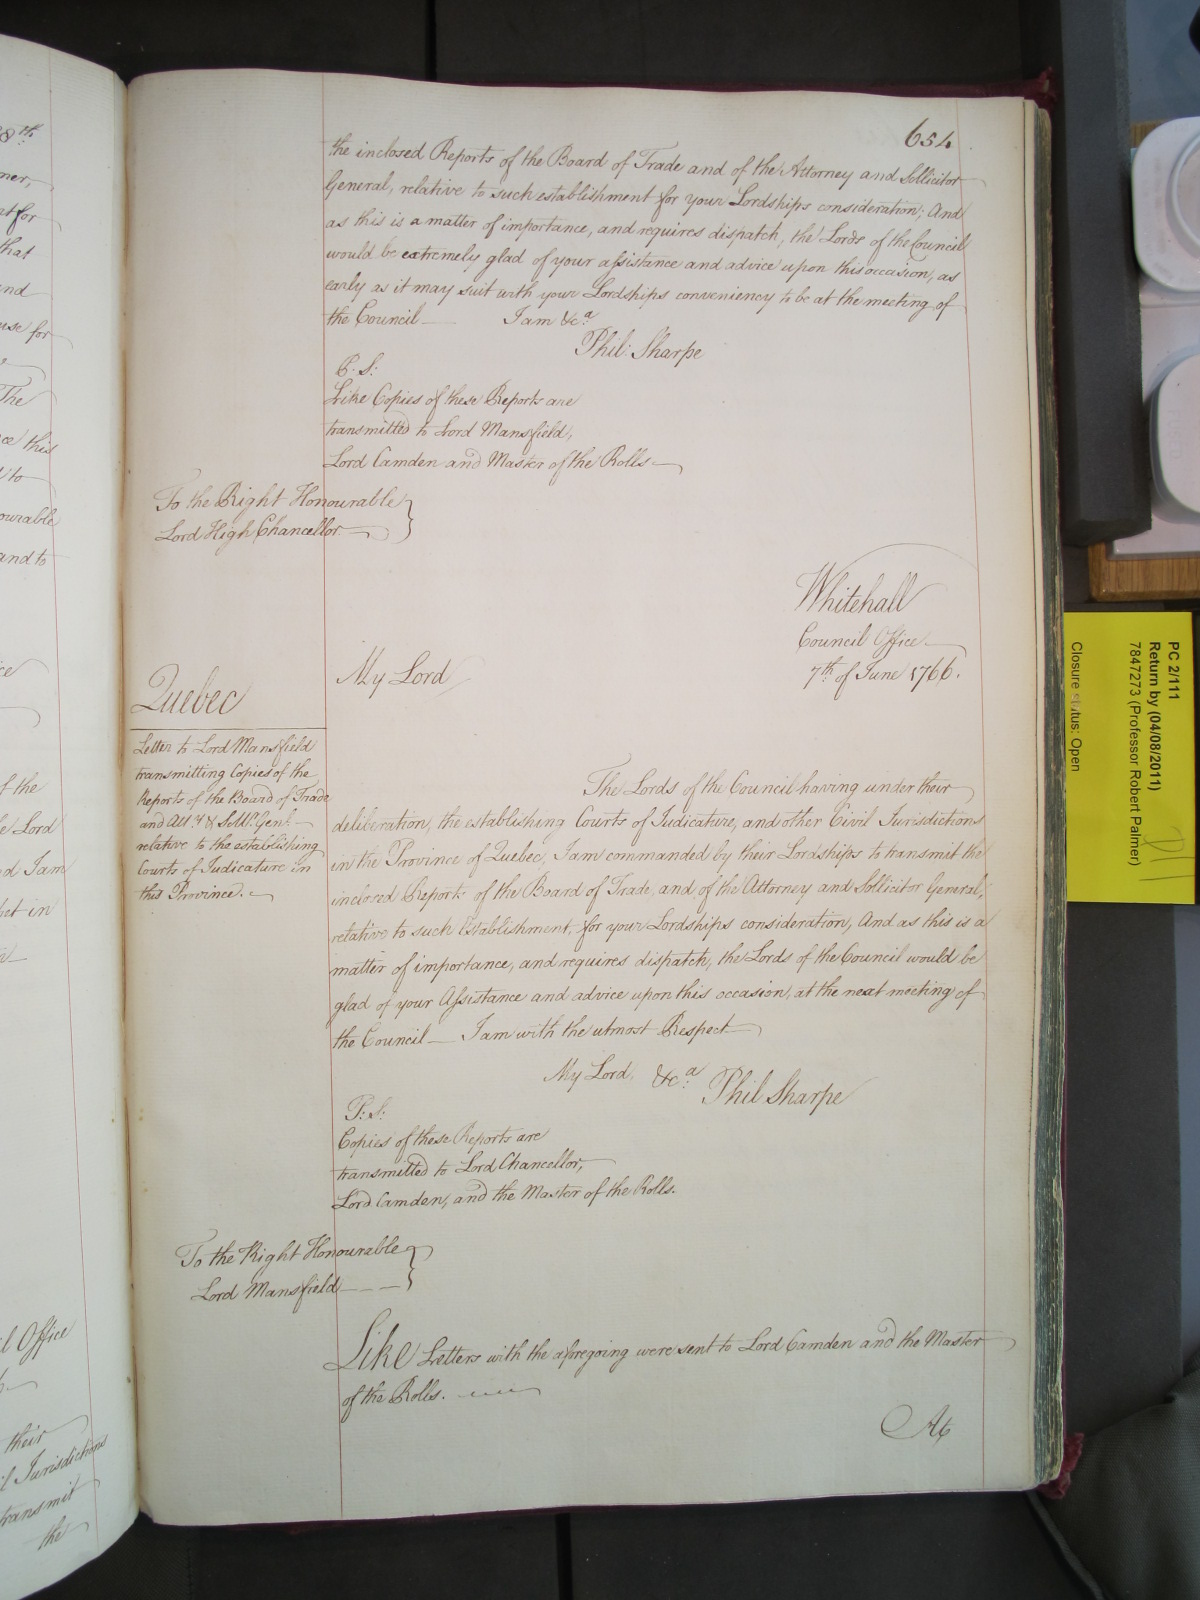 8th
ner,
at for
that
and
use for
The
ce this
to
ourable
and to
ice
f the
Lord
d I am
ict in
l Office
their
l Jurisdictions
transmit
the
654
the inclosed Reports of the Board of Trade and of the Attorney and Sollicitor
General, relative to such establishment for your Lordships consideration; And
as this is a matter of importance, and requires dispatch, the Lords of the Council
would be extremely glad of your assistance and advice upon this occasion, as
early as it may suit with your Lordships conveniency to be at the meeting of
the Council — I am &ca.
Phil: Sharpe
P: S:
Like Copies of these Reports are
transmitted to Lord Mansfield,
Lord Camden and Master of the Rolls —
To the Right Honourable
Lord High Chancellor. —
Whitehall
Council Office —
7th of June 1766.
Quebec
My Lord
Letter to Lord Mansfield
transmitting Copies of the
Reports of the Board of Trade
and Atty. & Sollr. Genl. —
relative to the establishing
Courts of Judicature in
this Province. —
The Lords of the Council having under their
deliberation, the establishing Courts of Judicature, and other Civil Jurisdictions
in the Province of Quebec, I am commanded by their Lordships to transmit the
inclosed Reports of the Board of Trade, and of the Attorney and Sollicitor General,
relative to such Establishment, for your Lordships consideration, And as this is a
matter of importance, and requires dispatch, the Lords of the Council would be
glad of your Assistance and advice upon this occasion, at the next meeting of
the Council — I am with the utmost Respect —
My Lord, &ca. Phil Sharpe
P: S:
Copies of these Reports are
transmitted to Lord Chancellor,
Lord Camden, and the Master of the Rolls.
To the Right Honourable
Lord Mansfield — — —
Like Letters with the aforegoing were sent to Lord Camden and the Master
of the Rolls. —
At
PC 2/111
Return by (04/08/2011)
7847273 (Professor Robert Palmer)
Closure status: Open